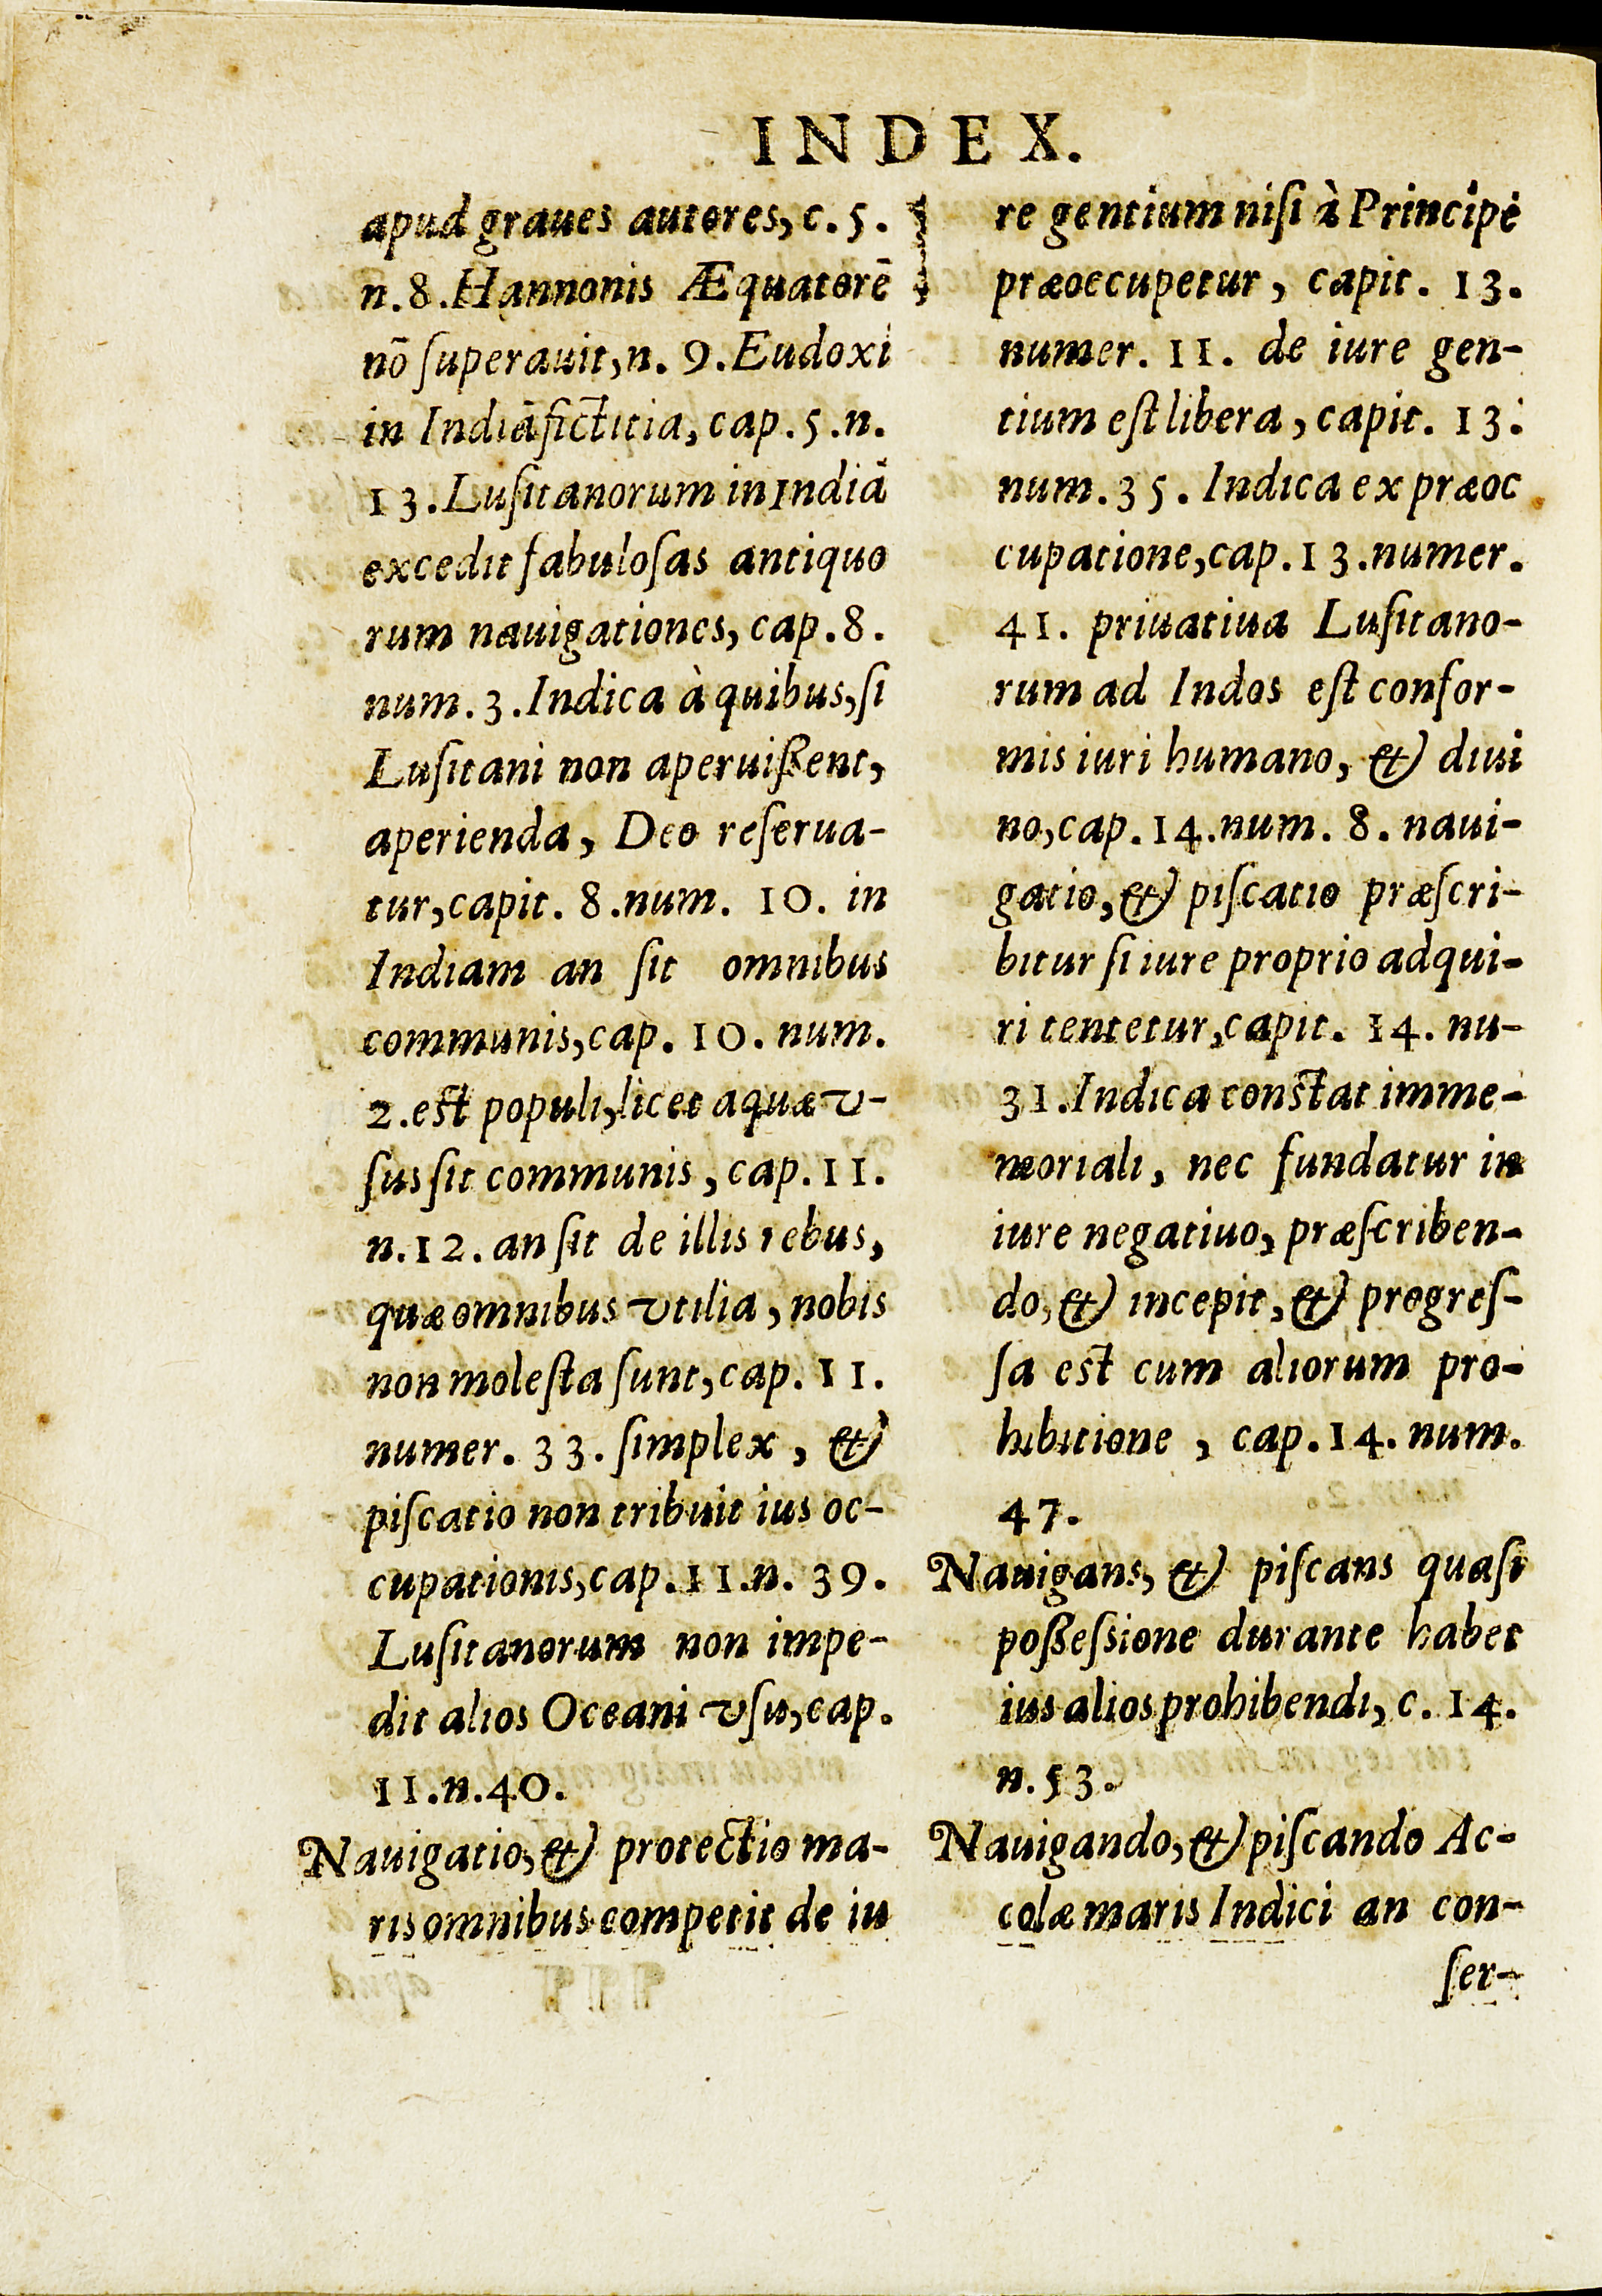 INDEX.
apud graues autores, c. 5.
n. 8. Hannonis Æquatorē
nō ſuperauit, n. 9. Eudoxi
in Indiā fictitia, cap. 5. n.
13. Luſitanorum in Indiā
excedit fabuloſas antiquo
rum nauigationes, cap. 8.
num. 3. Indica à quibus, ſi
Luſitani non aperuißent,
aperienda, Deo reſerua-
tur, capit. 8. num. 10. in
Indiam an ſit omnibus
communis, cap. 10. num.
2. est populi, licet aquæ v-
ſus ſit communis, cap. 11.
n. 12. an ſit de illis rebus,
quæ omnibus vtilia, nobis
non moleſta ſunt, cap. 11.
numer. 33. ſimplex, &
piſcatio non tribuit ius oc-
cupationis, cap. 11. n. 39.
Luſitanorum non impe-
dit alios Oceani vſu, cap.
11. n. 40.
Nauigatio, & protectio ma-
ris omnibus competit de iu
re gentium niſi à Principe
præoccupetur, capit. 13.
numer. 11. de iure gen-
tium eſt libera, capit. 13.
num. 35. Indica ex præoc
cupatione, cap. 13. numer.
41. priuatiua Luſitano-
rum ad Indos eſt confor-
mis iuri humano, & diui
no, cap. 14. num. 8. naui-
gatio, & piſcatio præſcri-
bitur ſi iure proprio adqui-
ri tentetur, capit. 14. nu-
31. Indica constat imme-
moriali, nec fundatur in
iure negatiuo, præſcriben-
do, & incepit, & progreſ-
ſa est cum aliorum pro-
hibitione, cap. 14. num.
47.
Nauigans, & piſcans quaſi
poßeſsione durante habet
ius alios prohibendi, c. 14.
n. 53.
Nauigando, & piſcando Ac-
colæ maris Indici an con-
ſer-